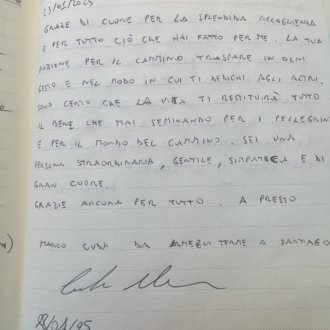 23/01/2025
GRAZIE DI CUORE PER LA SPLENDIDA ACCOGLIENZA
E PER TUTTO CIÒ CHE HAI FATTO PER ME. LA TUA
PASSIONE PER IL CAMMINO TRASPARE IN OGNI
GESTO E NEL MODO IN CUI TI DEDICHI AGLI ALTRI.
SONO CERTO CHE LA VITA TI RESTITUIRÀ TUTTO
IL BENE CHE STAI SEMINANDO PER I PELLEGRINI
E PER IL MONDO DEL CAMMINO. SEI UNA
PERSONA STRAORDINARIA, GENTILE, SIMPATICA E DI
GRAN CUORE.
GRAZIE ANCORA PER TUTTO. A PRESTO
MARCO CUDA DA TERME A SANTIAGO